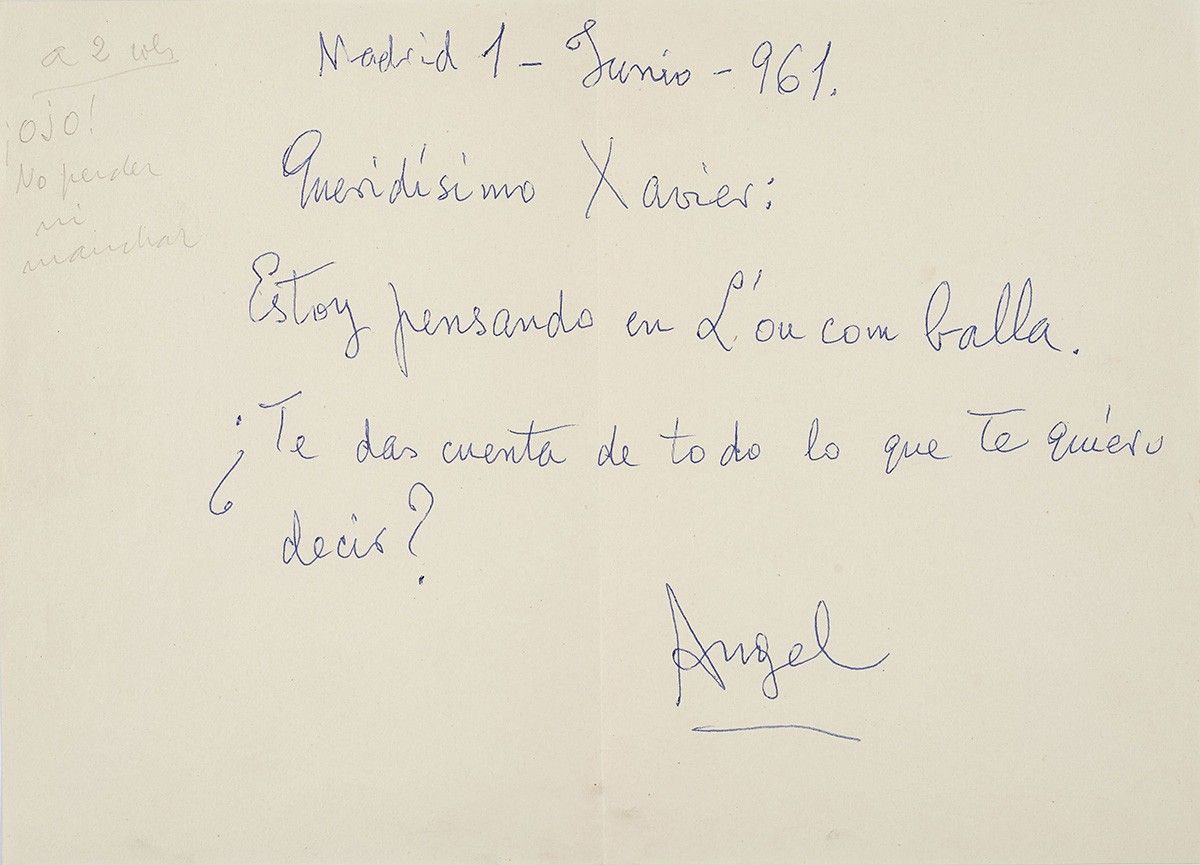 a 2 cols
¡OJO!
No perder
ni
manchar
Madrid 1 - Junio - 961.
Queridísimo Xavier:
Estoy pensando en L'ou com balla.
¿Te das cuenta de todo lo que te quiero
decir?
Angel